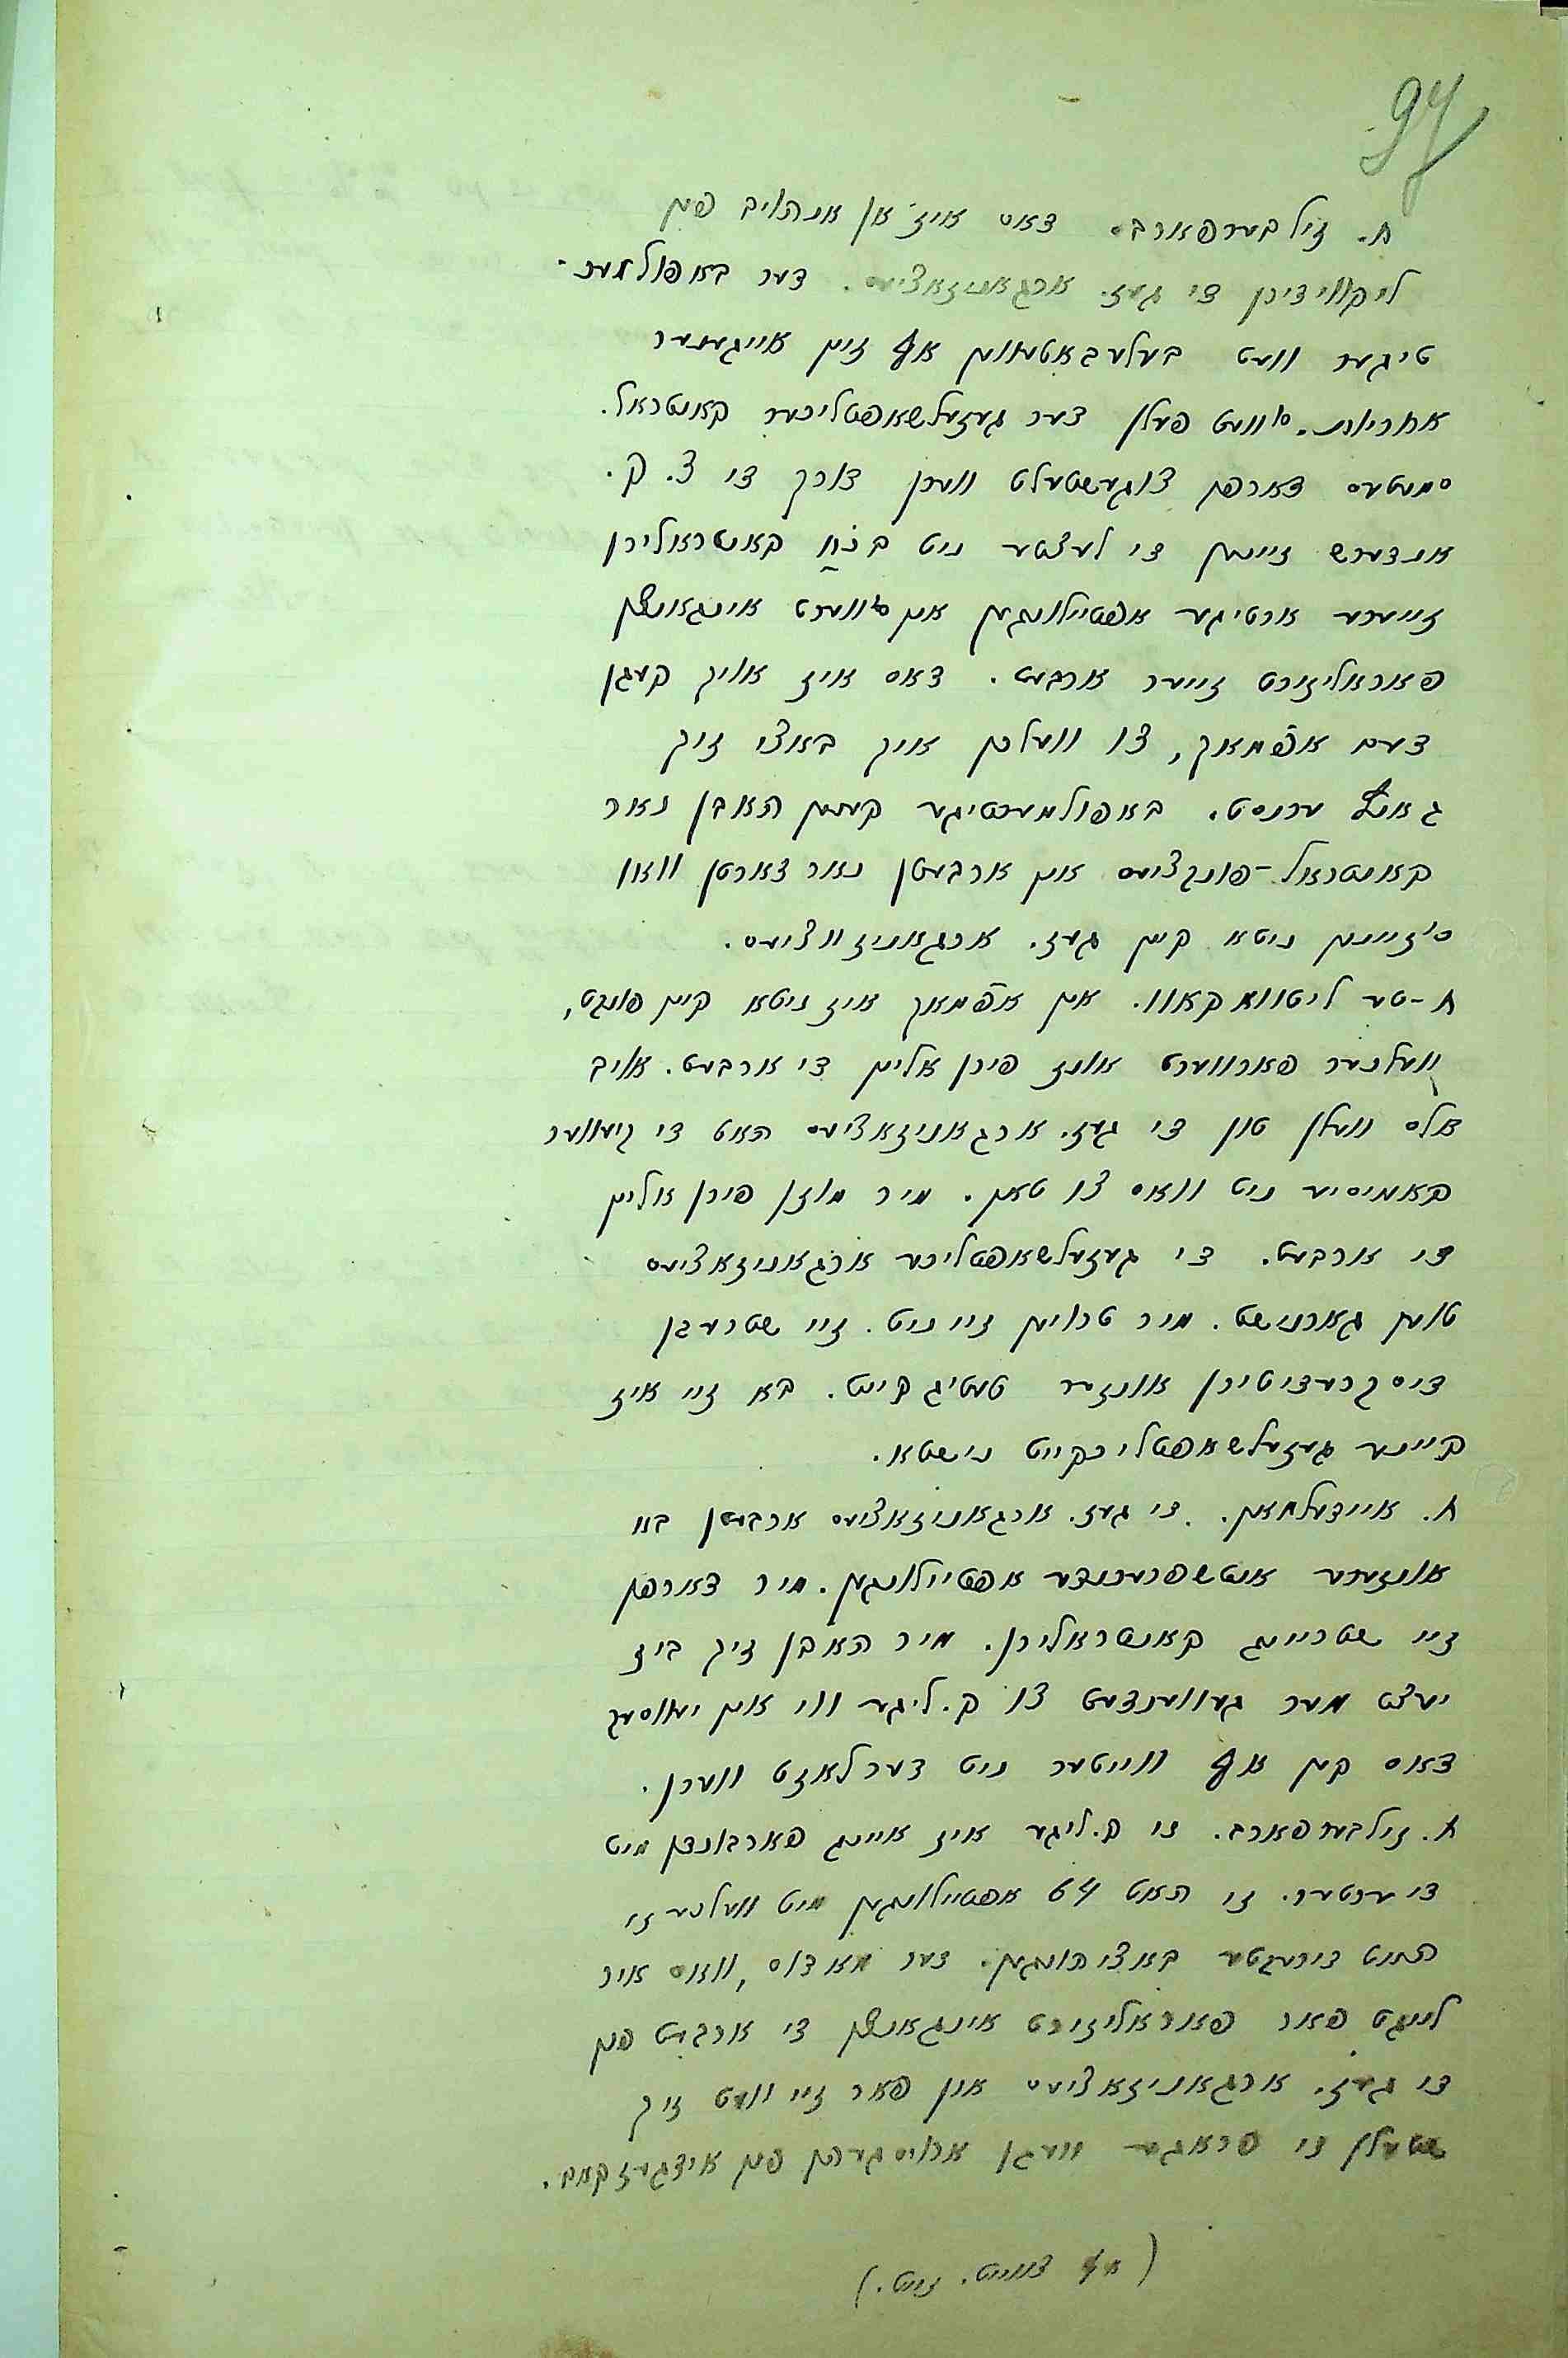 97
ח. זילבערפארב. דאס איז אן אנהויב פון
ליקווידירן די געז. ארגאניזאציעס. דער באפולמעכ-
טיגער וועט בעלעבאטעווען אף זיין אייגענער
אחריות. ס'וועט פעלן דער געזעלשאפטליכער קאנטראל.
סמעטעס דארפן צוגעשטעלט ווערן דורך די צ. ק.
אנדערש זיינען די לעצטע ניט בכוח קאנטראלירן
זייערע ארטיגע אפטיילונגען און ס'ווערט אינגאנצן
פאראליזירט זייער ארבעט. דאס איז אויך קעגן
דעם אפמאך, צו וועלכן איך באצי זיך
גאנץ ערנסט. באפולמעכטיגער קענען האבן נאר
קאנטראל-פונקציעס און ארבעטן נאר דארטן וואו
ס'זיינען ניטא קיין געז. ארגאניזאציעס.
ח-טע ליטוואקאוו. אין אפמאך איז ניטא קיין פונקט,
וועלכער פארווערט אונז פירן אליין די ארבעט. אויב
אלס וועלן טון די געז. ארגאניזאציעס האט די קיעווער
קאמיסיע ניט וואס צו טאן. מיר מוזן פירן אליין
די ארבעט. די געזעלשאפטליכע ארגאניזאציעס
טוען גארנישט. מיר טרויען זיי ניט. זיי שטרעבן
דיסקרעדיטירן אונזער טעטיגקייט. בא זיי איז
קיינע געזעלשאפטליכקייט נישטא.
ח. איידעלמאן. די געז. ארגאניזאציעס ארבעטן בא
אונזערע אנטשפרעכנדע אפטיילונגען. מיר דארפן
זיי שטריינג קאנטראלירן. מיר האבן זיך ביז
יעצט מער געווענדעט צו ק. ליגע ווי אין יעווסעק
דאס קען אף ווייטער ניט דערלאזט ווערן.
ח. זילבערפארב. די ק. ליגע איז איינג פארבונדן מיט
די ערטער. זי האט 64 אפטיילונגען מיט וועלכע זי
האט דירעקטע באציהונגען. דער מאדוס, וואס איר
לייגט פאר פאראליזירט אינגאנצן די ארבעט פון
די געז. ארגאניזאציעס און פאר זיי וועט זיך
שטעלן די פראגע וועגן ארויסגעהן פון אידגעזקאם.
(אף צווייט. זייט.)